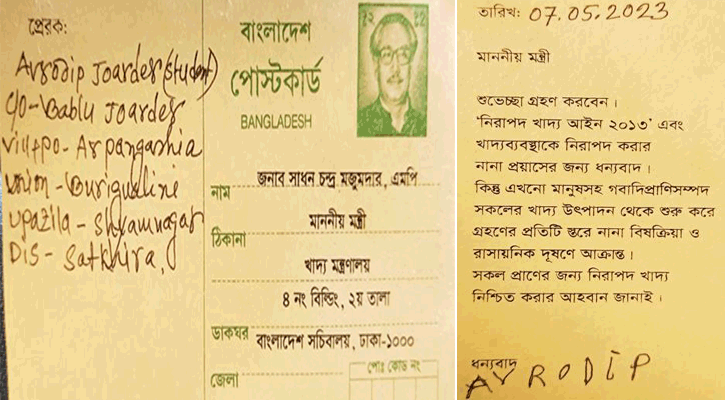 প্রেরক:
Avrodip Joarder (Student)
C/O- Bablu Joarder
Vill+po- Arpangashia
Union - Burigualini
Upazila - Shyamnagar
Dis - Satkhira,
বাংলাদেশ
পোস্টকার্ড
BANGLADESH
নাম জনাব সাধন চন্দ্র মজুমদার, এমপি
মাননীয় মন্ত্রী
ঠিকানা
খাদ্য মন্ত্রণালয়
৪ নং বিল্ডিং, ২য় তালা
ডাকঘর বাংলাদেশ সচিবালয়, ঢাকা-১০০০
জেলা
পোঃ কোড নং
তারিখ: 07.05.2023
মাননীয় মন্ত্রী
শুভেচ্ছা গ্রহণ করবেন।
‘নিরাপদ খাদ্য আইন ২০১৩’ এবং
খাদ্যব্যবস্থাকে নিরাপদ করার
নানা প্রয়াসের জন্য ধন্যবাদ।
কিন্তু এখনো মানুষসহ গবাদিপ্রাণিসম্পদ
সকলের খাদ্য উৎপাদন থেকে শুরু করে
গ্রহণের প্রতিটি স্তরে নানা বিষক্রিয়া ও
রাসায়নিক দূষণে আক্রান্ত।
সকল প্রাণের জন্য নিরাপদ খাদ্য
নিশ্চিত করার আহবান জানাই।
ধন্যবাদ
AVRODIP